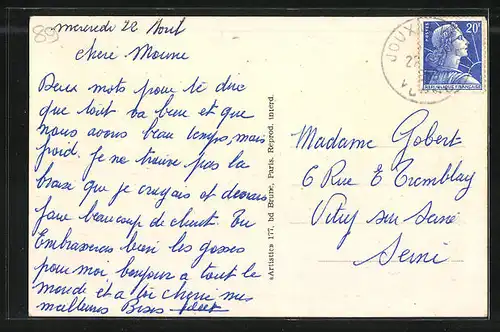 89
mercredi 22 Aout
chère Moune
Deux mots pour te dire
que tout va bien et que
nous avons beau temps, mais
froid. Je ne trouve pas la
que je croyais et devrais
faire beaucoup de Tu
Embrasseras bien les gosses
pour moi bonjour a tout le
monde et a toi cherie mes
meilleures Bises
«Artistica 177, bd Brune, Paris. Reprod. interd.
JOUX
POSTES
20F
REPUBLIQUE FRANÇAISE
Madame Gobert
6 Rue E Tremblay
Vitry sur Seine
Seine